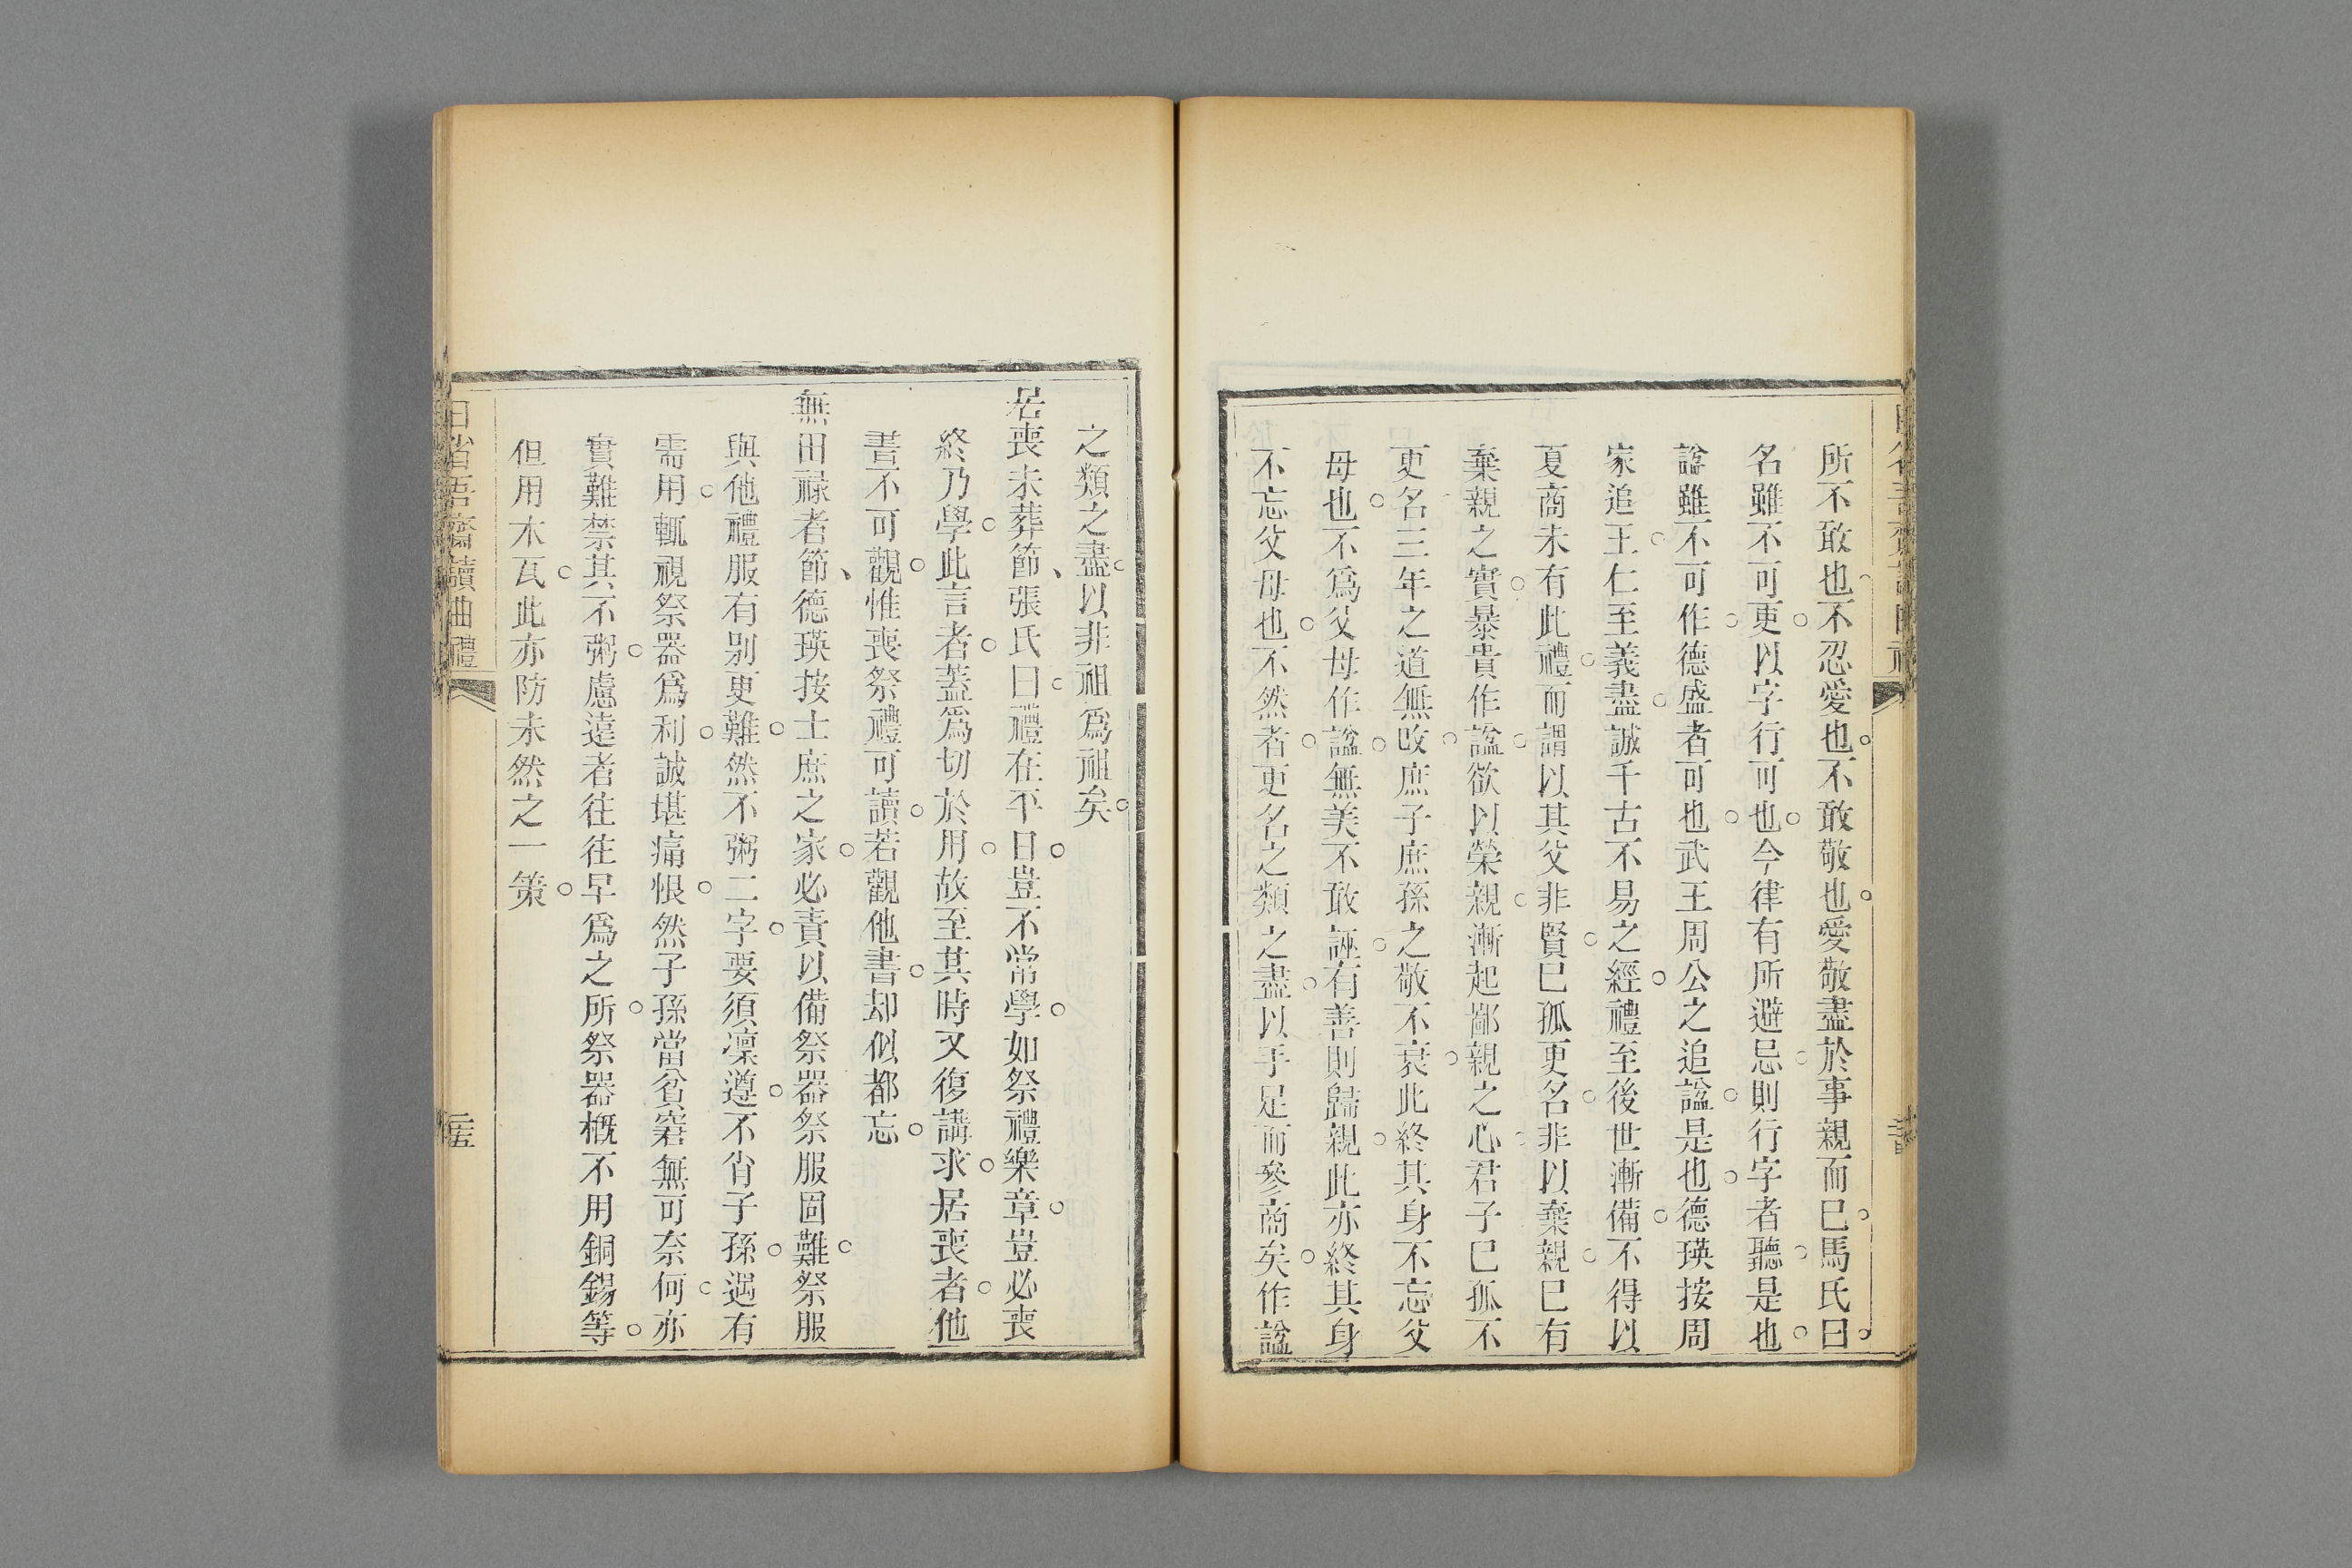 所不敢也不忍愛也不敢敬也愛敬盡於事親而已馬氏曰
名雖不可更以字行可也今律有所避忌則行字者聽是也
諡雖不可作德盛者可也武王周公之追諡是也德瑛按周
家追王仁至義盡誠千古不易之經禮至後世漸備不得以
夏商未有此禮而謂以其父非賢已孤更名非以棄親已有
棄親之實暴貴作諡欲以榮親漸起鄙親之心君子已孤不
更名三年之道無改庶子庶孫之敬不衰此終其身不忘父
母也不爲父母作諡無美不敢誣有善則歸親此亦終其身
不忘父母也不然者更名之類之盡以手足而參商矣作諡
之類之盡以非祖爲祖矣
居喪未葬節張氏曰禮在平日豈不常學如祭禮樂章豈必喪
終乃學此言者蓋爲切於用故至其時又復講求居喪者他
書不可觀惟喪祭禮可讀若觀他書却似都忘
無田祿者節德瑛按士庶之家必責以備祭器祭服固難祭服
與他禮服有别更難然不粥二字要須凜遵不肖子孫遇有
需用輒視祭器爲利誠堪痛恨然子孫當貧窘無可奈何亦
實難禁其不粥慮遠者往往早爲之所祭器槪不用銅錫等
但用木瓦此亦防未然之一策
日省吾齋讀曲禮
二十五